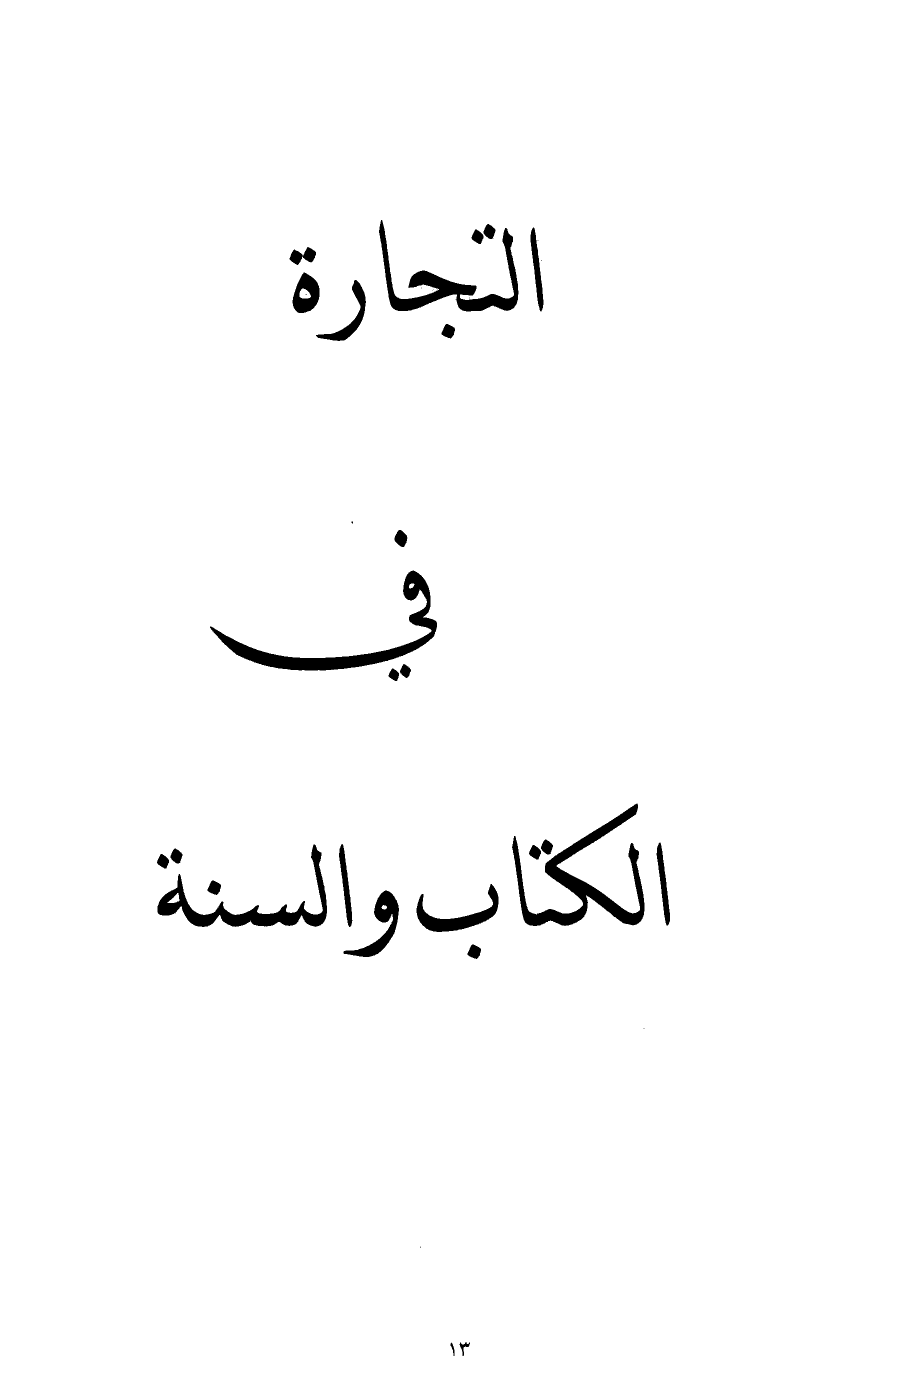 التجارة
في
الكتاب والسنة
١٣